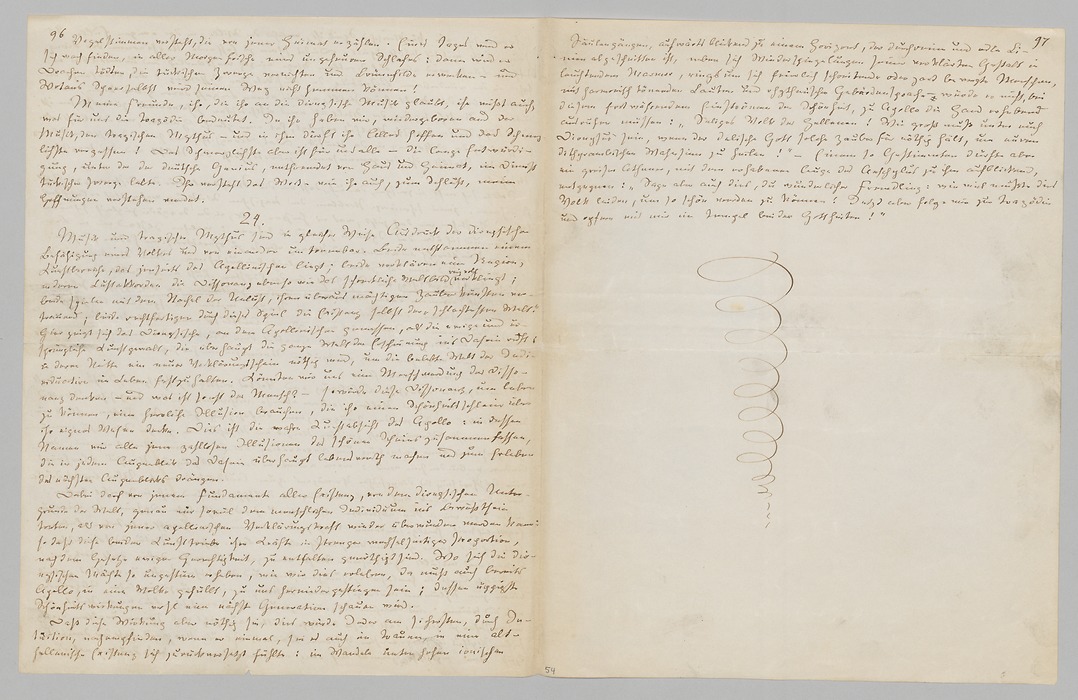 96
Vogelstimmen versteht, die von jener Heimat erzählen. Eines Tages wird er
sich wach finden, in aller Morgenfrische eines ungeheuren Schlafes: dann wird er
Drachen tödten, die tückischen Zwerge vernichten und Brünnhilde erwecken — und
Wotans Speer selbst wird seinen Weg nicht hemmen können!
Meine Freunde, ihr, die ihr an die dionysische Musik glaubt, ihr wißt auch,
was für uns die Tragödie bedeutet. In ihr haben wir, wiedergeboren aus der
Musik, den tragischen Mythus — und in ihm dürft ihr Alles hoffen und das Schmerz-
lichste vergessen! Das Schmerzlichste aber ist für uns alle — die lange Entwürdi-
gung, unter der der deutsche Genius, entfremdet von Haus und Heimat, im Dienst
tückischer Zwerge lebte. Ihr versteht das Wort — wie ihr auch, zum Schluß, meine
Hoffnungen verstehen werdet.
24.
Musik und tragischer Mythus sind in gleicher Weise Ausdruck der dionysischen
Befähigung eines Volkes und von einander untrennbar. Beide entstammen einem
Kunstbereiche, das jenseits des Apollinischen liegt; beide verklären eine Region,
in deren Lustakkorden die Dissonanz ebenso wie das schreckliche Weltbild reizvoll verklingt;
beide spielen mit dem Stachel der Unlust, ihren überaus mächtigen Zauberkünsten ver-
trauend; beide rechtfertigen durch dieses Spiel die Existenz selbst der „schlechtesten Welt."
Hier zeigt sich das Dionysische, an dem Apollinischen gemessen, als die ewige und ur-
sprüngliche Kunstgewalt, die überhaupt die ganze Welt der Erscheinung ins Dasein ruft:
in deren Mitte ein neuer Verklärungsschein nöthig wird, um die belebte Welt der Indi-
viduation im Leben festzuhalten. Könnten wir uns eine Menschwerdung der Disso-
nanz denken — und was ist sonst der Mensch? — so würde diese Dissonanz, um leben
zu können, eine herrliche Illusion brauchen, die ihr einen Schönheitsschleier über
ihr eignes Wesen decke. Dies ist die wahre Kunstabsicht des Apollo: in dessen
Namen wir alle jene zahllosen Illusionen des schönen Scheins zusammenfassen,
die in jedem Augenblick das Dasein überhaupt lebenswerth machen und zum Erleben
des nächsten Augenblicks drängen.
Dabei darf von jenem Fundamente aller Existenz, von dem dionysischen Unter-
grunde der Welt, genau nur soviel dem menschlichen Individuum ins Bewußtsein
treten, als von jener apollinischen Verklärungskraft wieder überwunden werden kann:
so daß diese beiden Kunsttriebe ihre Kräfte in strenger wechselseitiger Proportion,
nach dem Gesetze ewiger Gerechtigkeit, zu entfalten genöthigt sind. Wo sich die dio-
nysischen Mächte so ungestüm erheben, wie wir dies erleben, da muß auch bereits
Apollo, in eine Wolke gehüllt, zu uns herniedergestiegen sein; dessen üppigste
Schönheitswirkungen wohl eine nächste Generation schauen wird.
Daß diese Wirkung aber nöthig sei, dies würde Jeder am sichersten, durch In-
tuition, nachempfinden, wenn er einmal, sei es auch im Traume, in eine alt-
hellenische Existenz sich zurückversetzt fühlte: im Wandeln unter hohen ionischen
97
Säulengängen, aufwärts blickend zu einem Horizont, der durch reine und edle Li-
nien abgeschnitten ist, neben sich Wiederspiegelungen seiner verklärten Gestalt in
leuchtendem Marmor, rings um sich feierlich schreitende oder zart bewegte Menschen,
mit harmonisch tönenden Lauten und rhythmischer Gebärdensprache — würde er nicht, bei
diesem fortwährenden Einströmen der Schönheit, zu Apollo die Hand erhebend
ausrufen müssen: „Seliges Volk der Hellenen! Wie groß muß unter euch
Dionysus sein, wenn der delische Gott solche Zauber für nöthig hält, um euren
dithyrambischen Wahnsinn zu heilen!" — Einem so Gestimmten dürfte aber
ein greiser Athener, mit dem erhabenen Auge des Aeschylus zu ihm aufblickend,
entgegnen: „Sage aber auch dies, du wunderlicher Fremdling: wie viel mußte dies
Volk leiden, um so schön werden zu können! Jetzt aber folge mir zur Tragödie
und opfere mit mir im Tempel beider Gottheiten!"
54